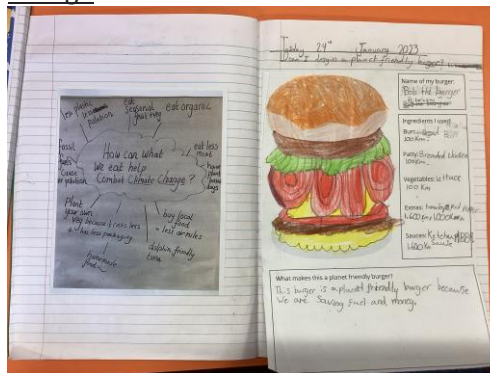 less plastic
pollution
eat
seasonal
fruit + veg
eat organic
fossil
fuels
cause
air pollution
How can what
we eat help
Combat Climate Change?
eat less
meat
have
plant
based
Plant
your own
veg because it costs less
+ has less packaging
buy local
food
= less air miles
dolphin friendly
tuna
homemade
food
24th January 2023
Can I design a planet friendly burger?
Name of my burger:
Bob the Burger
Ingredients I used:
Bun:
100 Km
Patty: Breaded chicken
100 Km
Vegetables: lettuce
100 Km
Extras:
1,600 Km
Sauces: Ketchup
1,600 Km
What makes this a planet friendly burger?
This burger is a planet friendly burger because
We are Saving fuel and money.